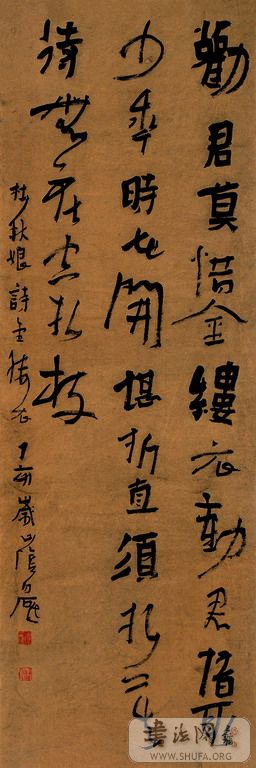 勸君莫惜金縷衣勸君惜取
少年時花開堪折直須折莫
待無花空折枝
杜秋娘詩金縷衣丁亥歲山陰白砥
書法网
WWW.SHUFA.ORG